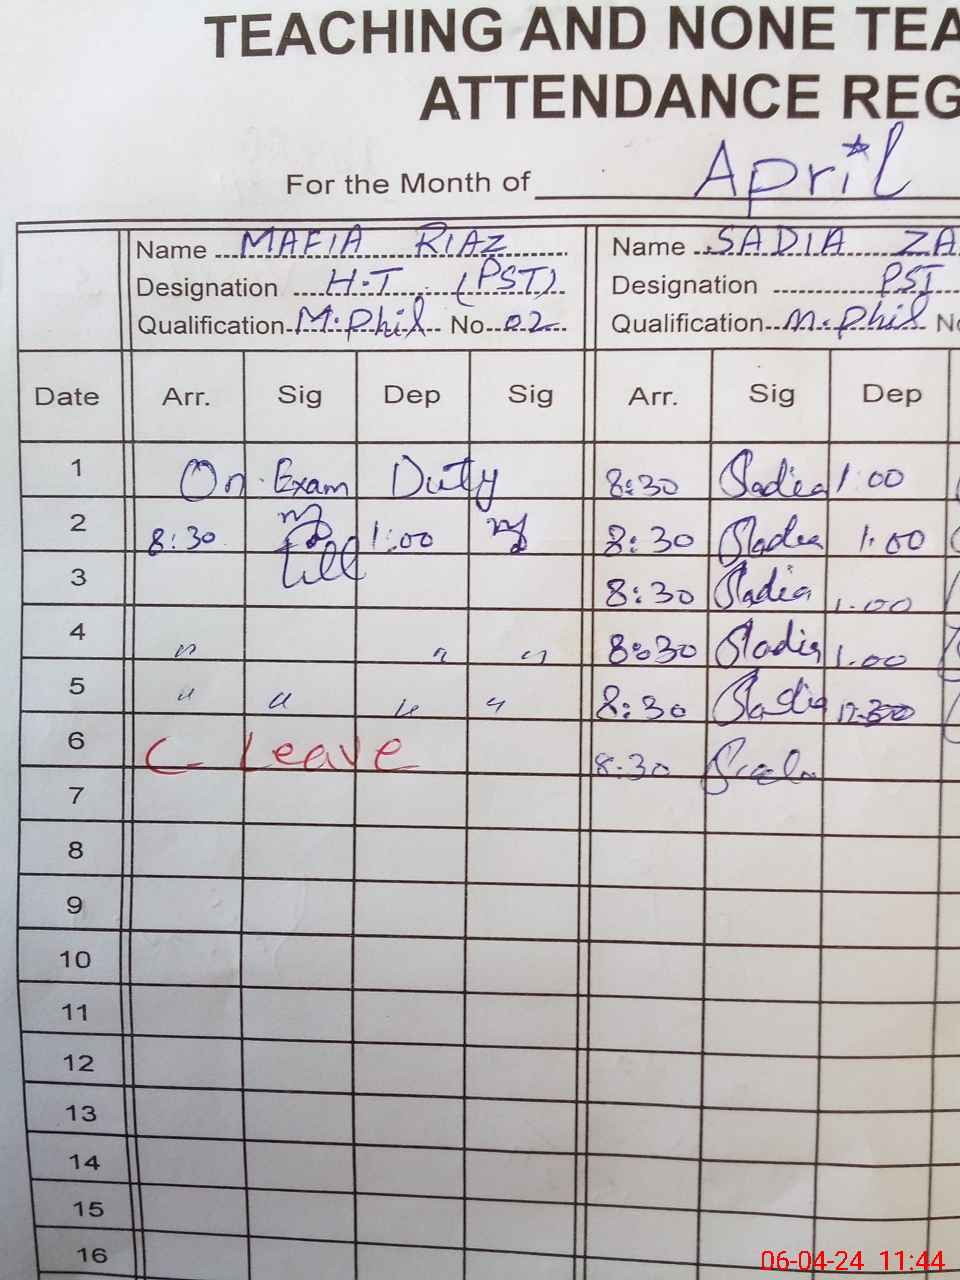 TEACHING AND NONE TEA
ATTENDANCE REG
For the Month of April
Name MAFIA RIAZ Name SADIA ZA
Designation H.T (PST) Designation PST
Qualification M.Phil No 02 Qualification M.Phil No
Date Arr. Sig Dep Sig Arr. Sig Dep
1 On Exam Duty 8:30 Sadia 1:00
2 8:30 1:00 8:30 Sadia 1:00
till
3 8:30 Sadia 1.00
4 " " " 8:30 Sadia 1.00
5 " " " " 8:30 Sadia
6 C- Leave 8:30
7
8
9
10
11
12
13
14
15
16
06-04-24 11:44